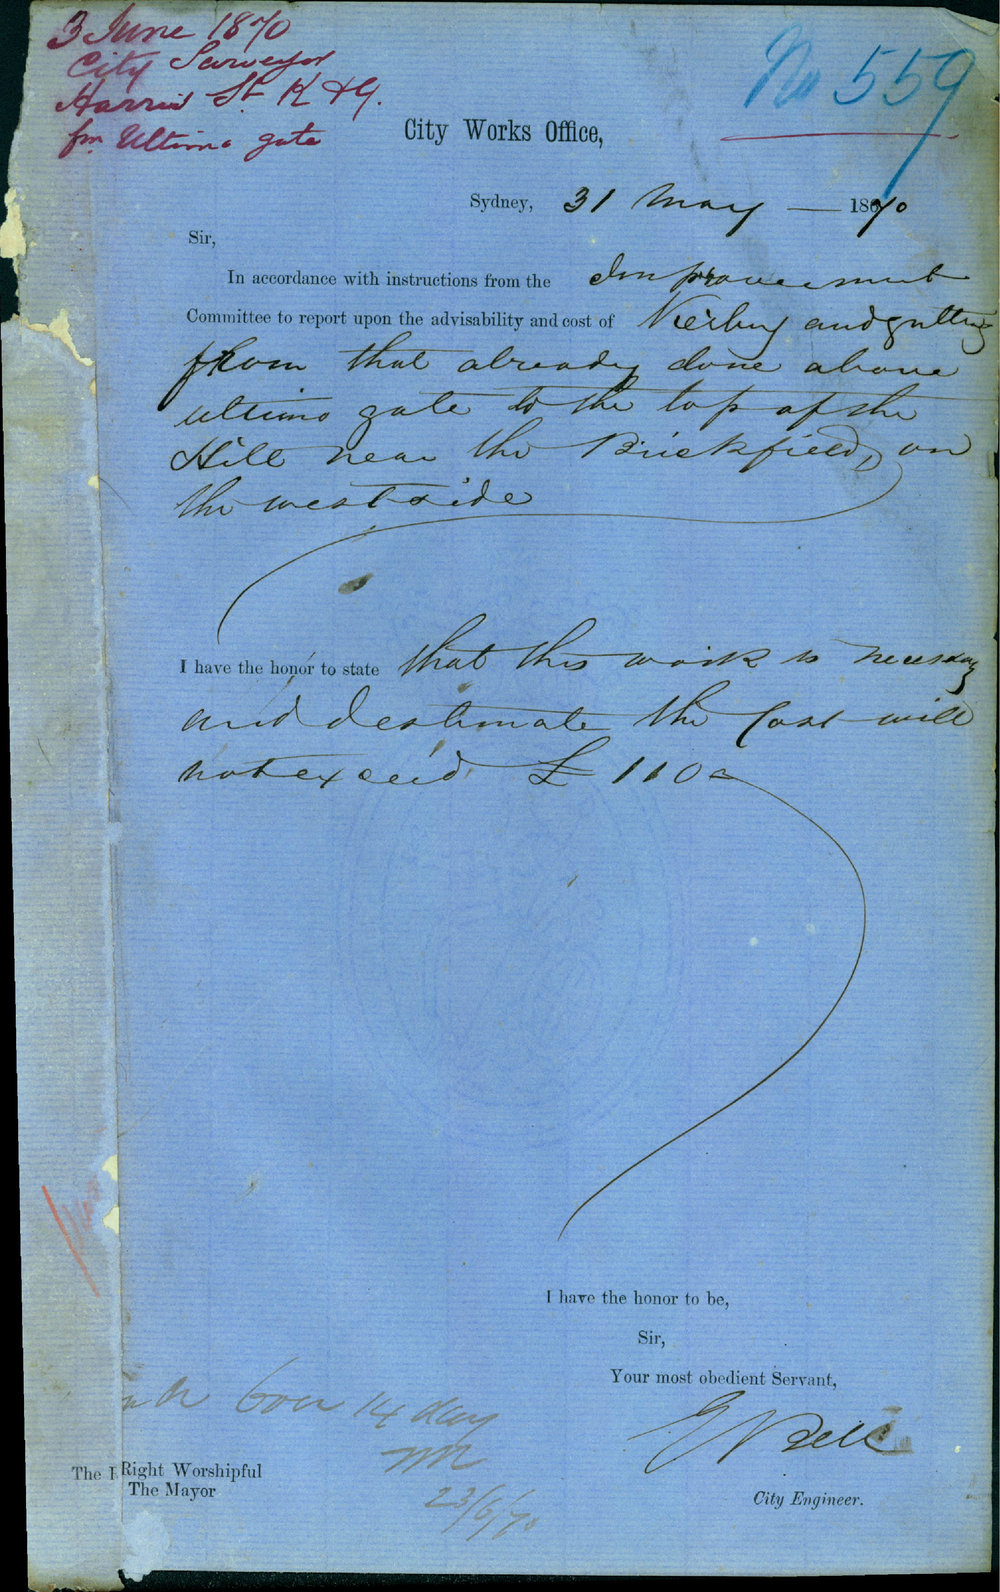 3 June 1870
City Surveyor
Harris St. K & G.
fm Ultimo gate
No 559
City Works Office,
Sydney, 31 May — 1870
Sir,
In accordance with instructions from the Improvement
Committee to report upon the advisability and cost of Kerbing and guttering
from that already done above
ultimo gate to the top of the
Hill near the Brickfield, on
the west side
I have the honor to state that this work is necessary
and I estimate the Cost will
not exceed £110
I have the honor to be,
Sir,
Your most obedient Servant,
E Bell
City Engineer.
14 day
The Right Worshipful
The Mayor
23/6/70